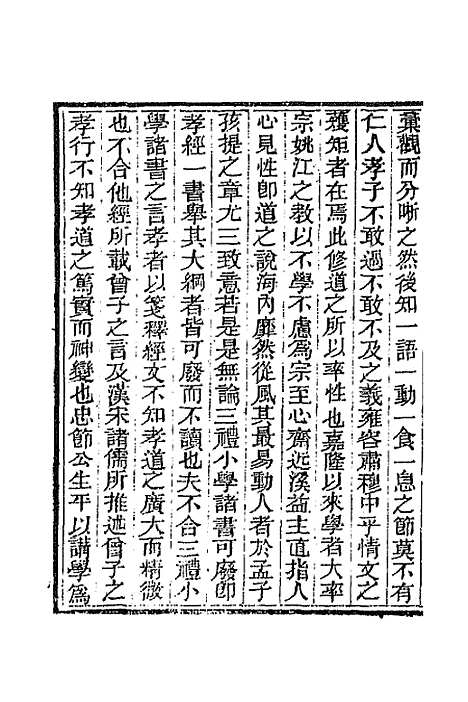 彙觀而分晰之然後知一語一動一食一息之節莫不有
仁人孝子不敢過不敢不及之義雍容肅穆中乎情文之
蒦矩者在焉此修道之所以率性也嘉隆以來學者大率
宗姚江之教以不學不慮爲宗至心齋近溪益主直指人
心見性卽道之說海內靡然從風其最易動人者於孟子
孩提之章尤三致意若是是無論三禮小學諸書可廢卽
孝經一書舉其大綱者皆可廢而不讀也夫不合三禮小
學諸書之言孝者以箋釋經文不知孝道之廣大而精微
也不合他經所載曾子之言及漢宋諸儒所推述曾子之
孝行不知孝道之篤實而神變也忠節公生平以講學爲